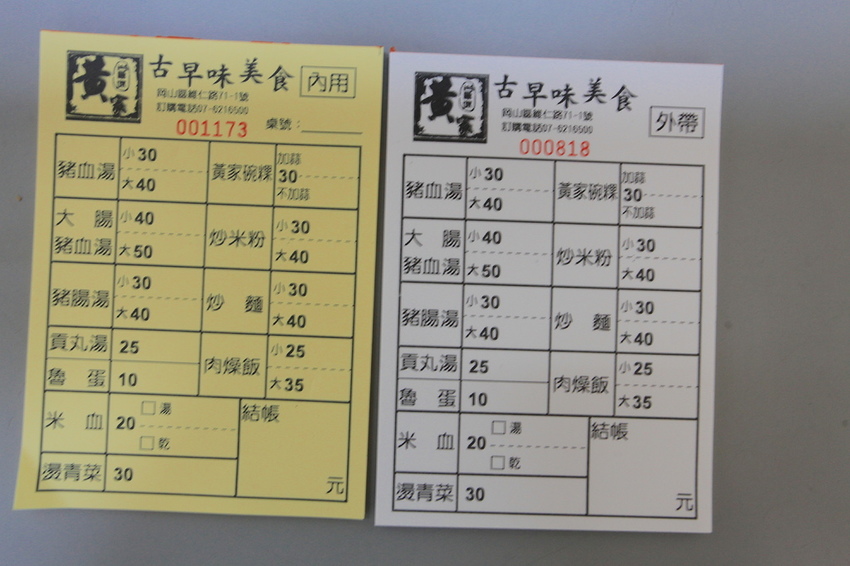 黃家
古早味美食
內用
岡山區維仁路71-1號
訂購電話07-6216500
001173
桌號：
豬血湯
小30
大40
黃家碗粿
加蒜
30
不加蒜
大腸
豬血湯
小40
大50
炒米粉
小30
大40
豬腸湯
小30
大40
炒麵
小30
大40
貢丸湯
25
魯蛋
10
肉燥飯
小25
大35
米血
20
□湯
□乾
結帳
元
燙青菜
30
黃家
古早味美食
外帶
岡山區維仁路71-1號
訂購電話07-6216500
000818
豬血湯
小30
大40
黃家碗粿
加蒜
30
不加蒜
大腸
豬血湯
小40
大50
炒米粉
小30
大40
豬腸湯
小30
大40
炒麵
小30
大40
貢丸湯
25
魯蛋
10
肉燥飯
小25
大35
米血
20
□湯
□乾
結帳
元
燙青菜
30